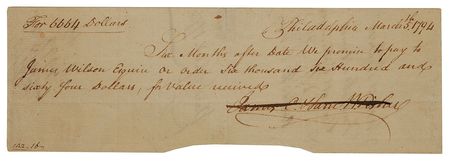 For 6664 Dollars. Philadelphia March 5th 1794
Six Months after Date We promise to pay to
James Wilson Esquire or order Six thousand six Hundred and
sixty four Dollars, for value received
James C & Sam W Fisher